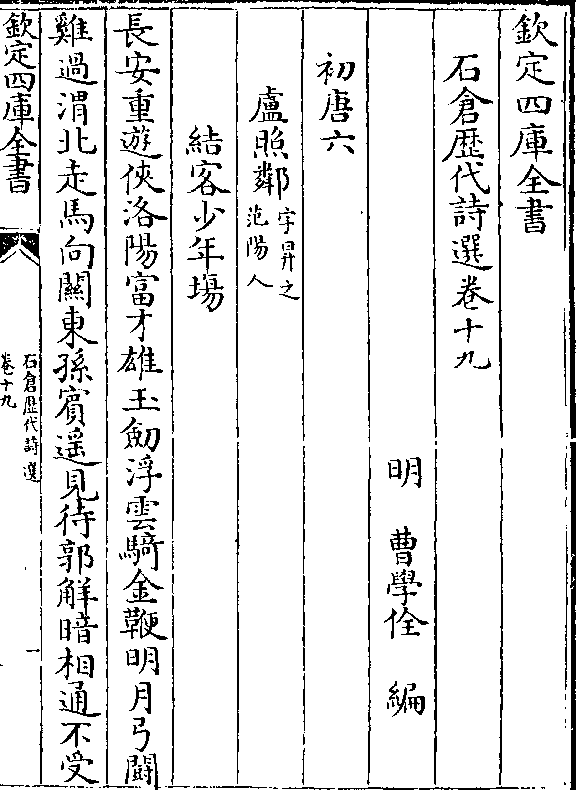 欽定四庫全書
石倉歷代詩選卷十九
明 曹學佺 編
初唐六
盧照鄰字昇之
范陽人
結客少年場
長安重遊俠洛陽富才雄玉劒浮雲騎金鞭明月弓鬬
雞過渭北走馬向關東孫賓遥見待郭解暗相通不受
欽定四庫全書
石倉歷代詩選
卷十九
一